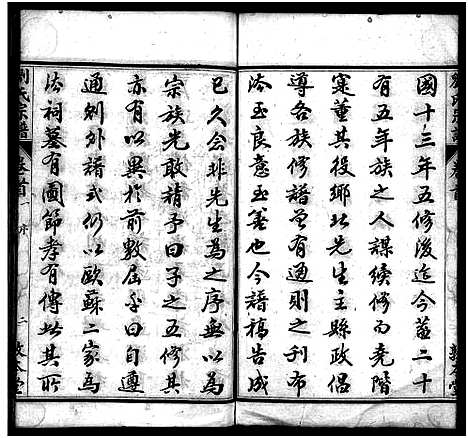 國十三年五修後迄今蓋二十
有五年族之人謀續修為堯階
寔董其役鄉北先生主縣政倡
導各族修譜曾有通則之刊布
法至良意至善也今譜稿告成
已久會非先生為之序無以
宗族光敢請予曰子之五修其
亦有以異於前數屆乎曰自遵
通例外譜式仍以歐蘇二家為
法祠墓有圖節孝有傳此其所
劉氏宗譜
卷首
二
敦本堂